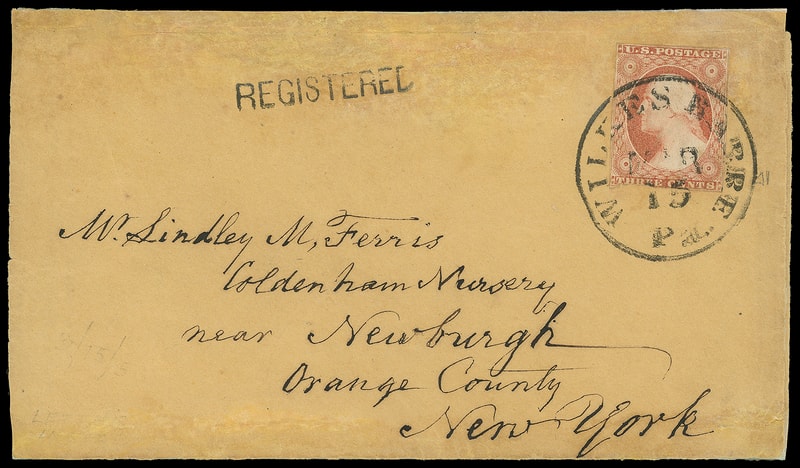 REGISTERED
U.S. POSTAGE
THREE CENTS
WILKES BARRE
MAR
15
Pa.
Mr. Lindley M, Ferris
Coldenham Nursery
near Newburgh
Orange County
New York